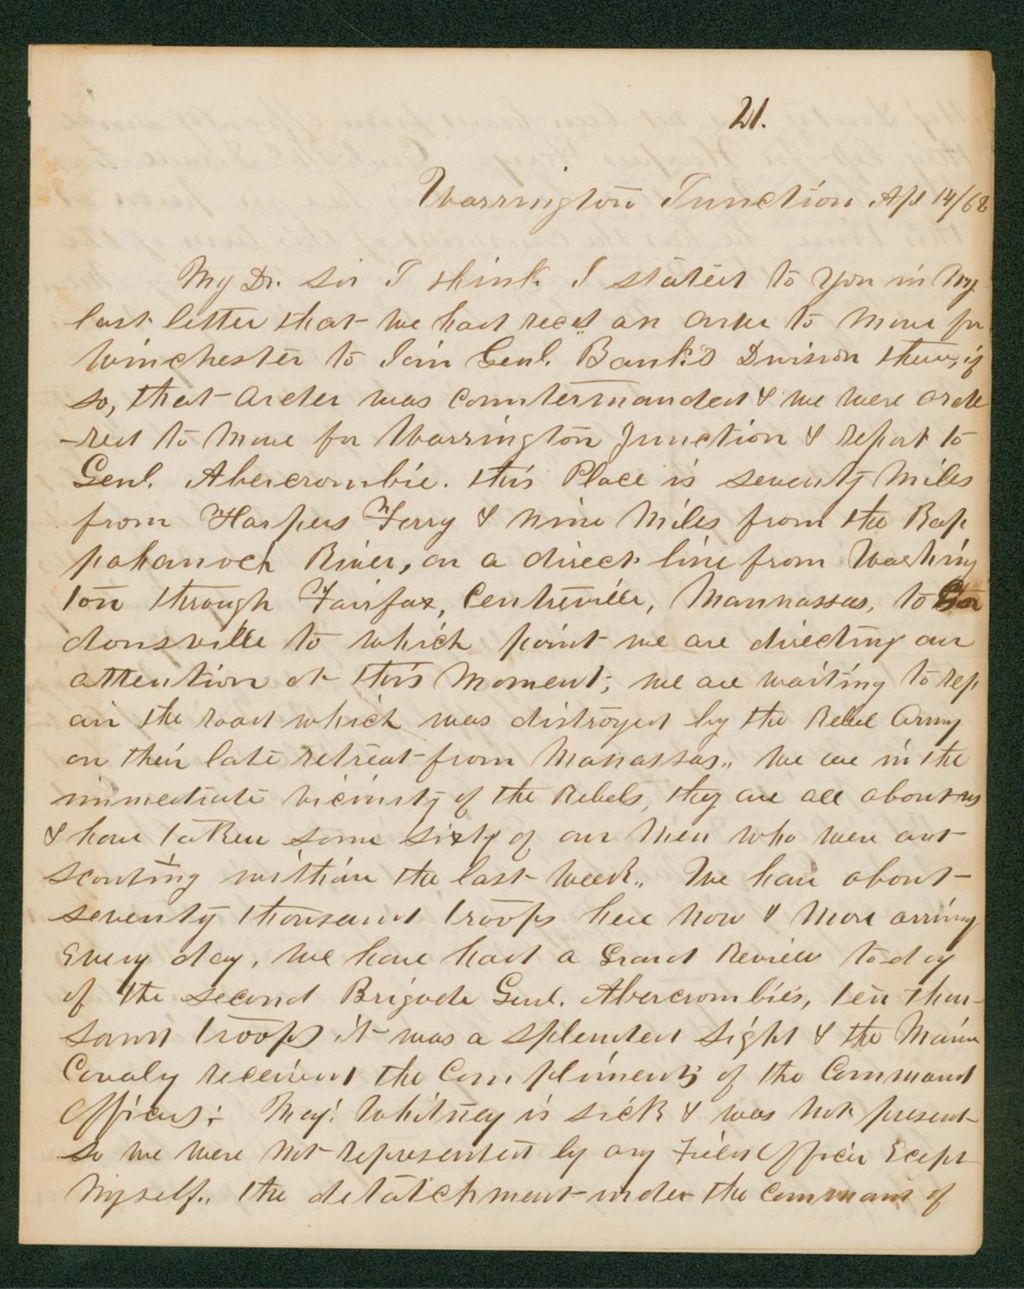 21.
Warrington Junction Apl 14/62
My Dr. Sir I think I stated to You in My
last letter that we had recd an order to Move for
Winchester to Join Genl. Bank's Division there, if
so, that order was countermanded & we were orde
-red to Move for Warrington Junction & report to
Genl. Abercrombie. this Place is seventy Miles
from Harpers Ferry & nine Miles from the Rap
pahanock River, on a direct line from Washing
ton through Fairfax, Centreville, Mannassas, to Gor
donsville to which point we are directing our
attention at this Moment; we are waiting to rep
air the road which was distroyed by the Rebel Army
on their late retreat from Manassas,, we are in the
immediate vicinity of the Rebels, they are all about us
& have taken some sixty of our Men who were out
scouting within the last week,, We have about
seventy thousand troops here now & More arriving
Every day, we have had a Grand Review to-day
of the second Brigade Genl. Abercrombies, ten thou-
sand troops it was a splended sight & the Maine
Cavaly received the Compliments of the Command
Officers; Maj. Whitney is sick & was not present
so we were not represented by any Field Officer Ecept
Myself,, the detatchment under the Command of